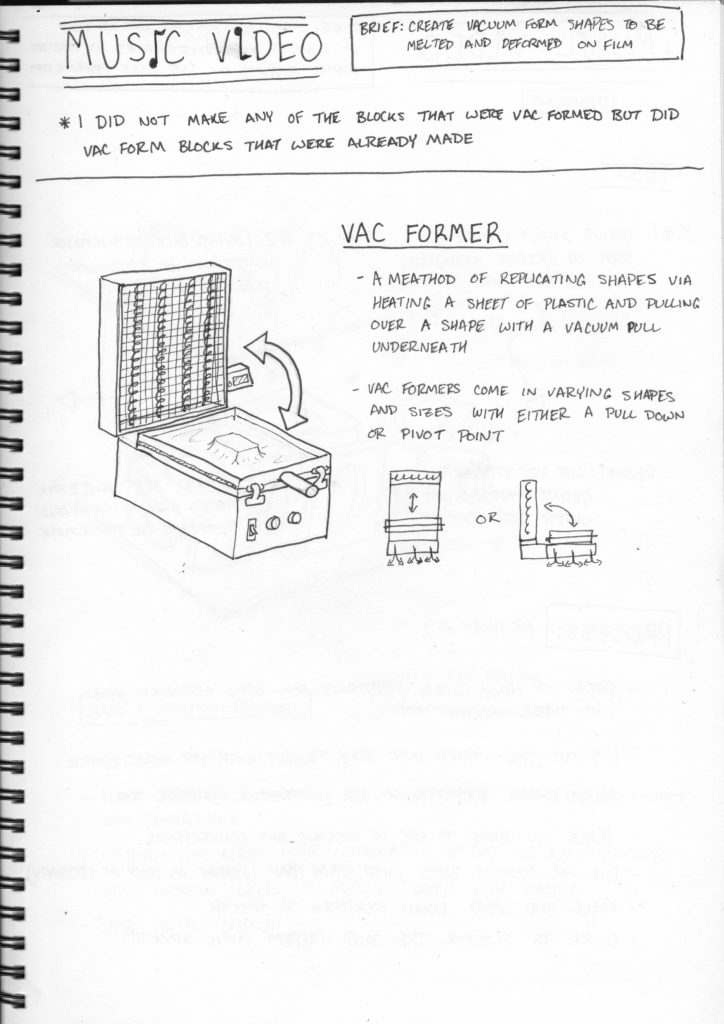 MUSIC VIDEO
BRIEF: CREATE VACUUM FORM SHAPES TO BE
MELTED AND DEFORMED ON FILM
* I DID NOT MAKE ANY OF THE BLOCKS THAT WERE VAC FORMED BUT DID
VAC FORM BLOCKS THAT WERE ALREADY MADE
VAC FORMER
- A MEATHOD OF REPLICATING SHAPES VIA
HEATING A SHEET OF PLASTIC AND PULLING
OVER A SHAPE WITH A VACUUM PULL
UNDERNEATH
- VAC FORMERS COME IN VARYING SHAPES
AND SIZES WITH EITHER A PULL DOWN
OR PIVOT POINT
OR